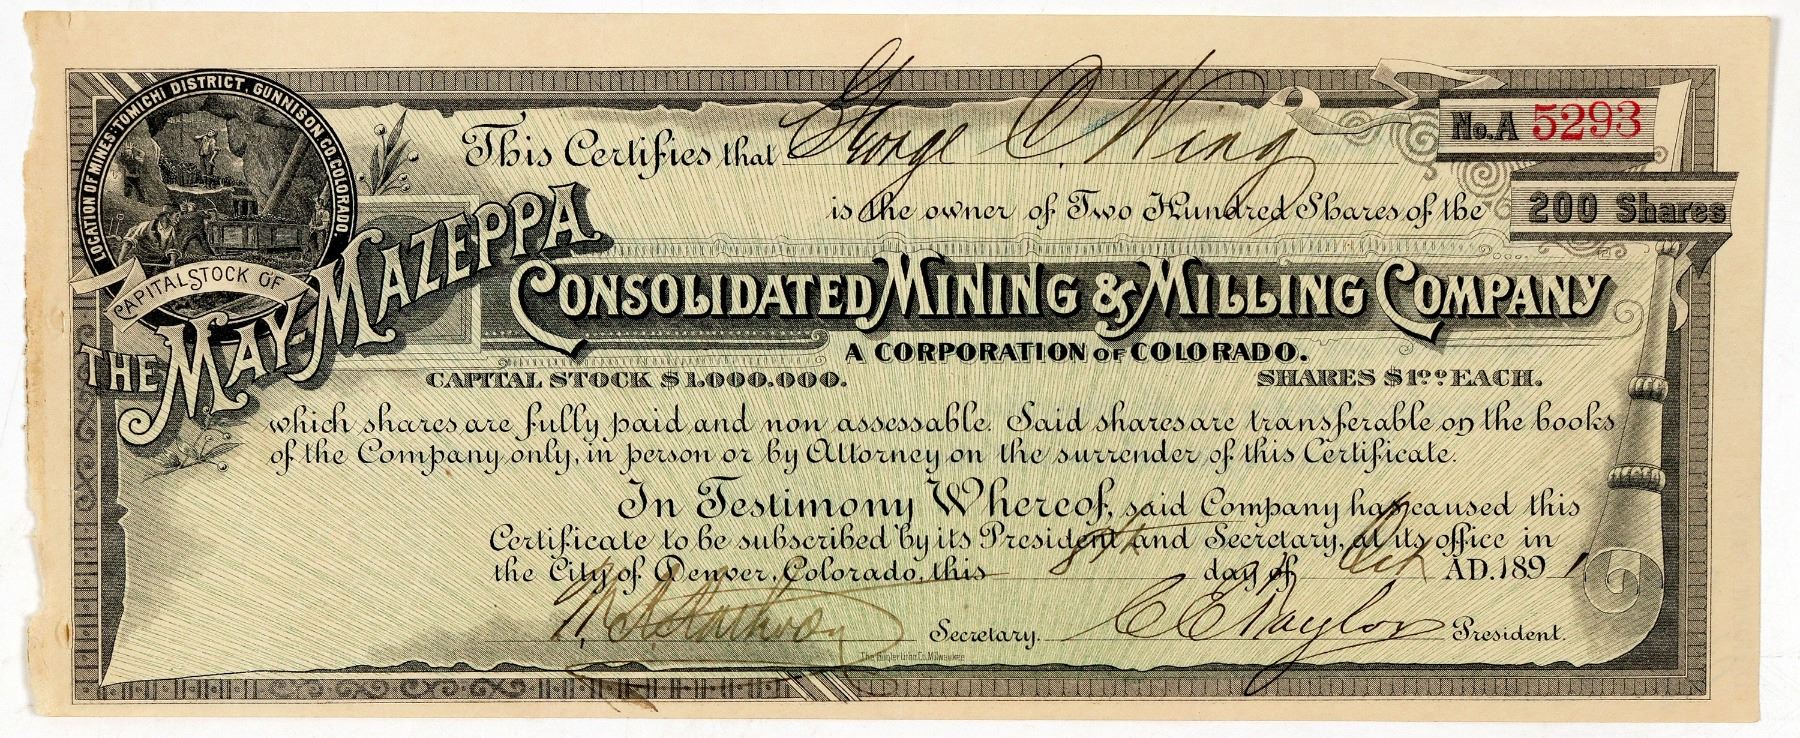 LOCATION OF MINES: TOMICHI DISTRICT, GUNNISON CO. COLORADO.
This Certifies that George C. Wing
No. A 5293
is the owner of Two Hundred Shares of the
200 Shares
CAPITAL STOCK OF
THE MAY-MAZEPPA
CONSOLIDATED MINING & MILLING COMPANY
A CORPORATION OF COLORADO.
CAPITAL STOCK $1.000.000.
SHARES $1.00 EACH.
which shares are fully paid and non assessable. Said shares are transferable on the books
of the Company only, in person or by Attorney on the surrender of this Certificate.
In Testimony Whereof, said Company has caused this
Certificate to be subscribed by its President and Secretary, at its office in
the City of Denver, Colorado, this 8th day of Oct A.D. 1891
Secretary. C E Naylor President.
Litho. Co. Milwaukee